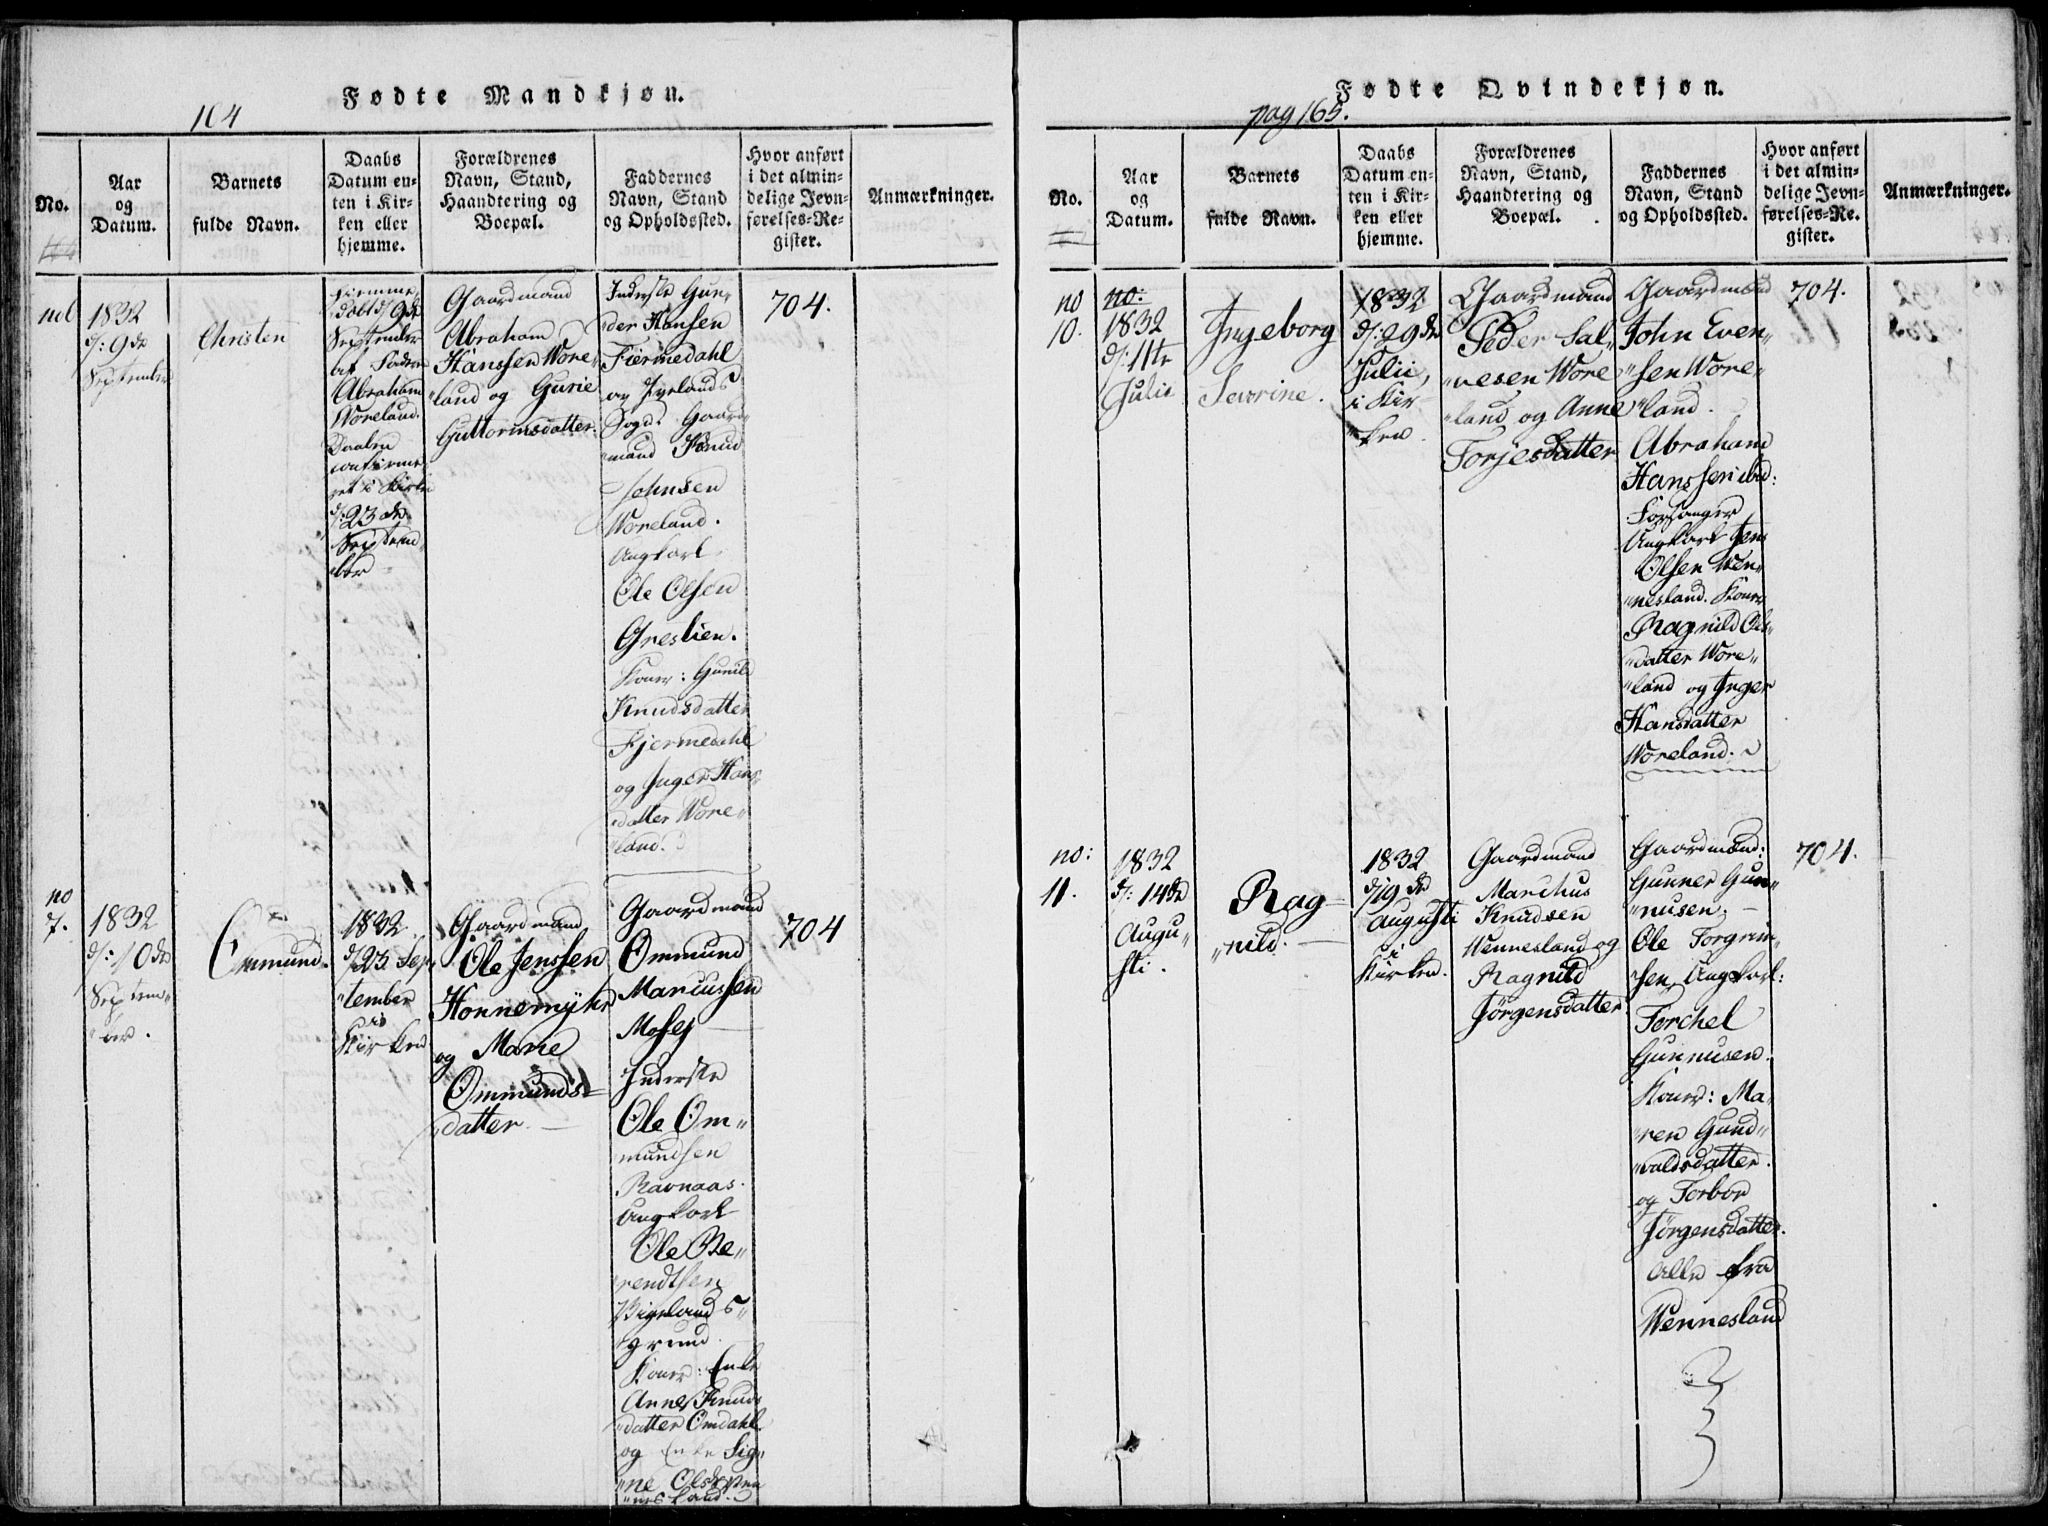 Fødte Mandkjøn.
164
No.
Aar
og
Datum.
Barnets
fulde Navn.
Daabs
Datum en-
ten i Kir-
ken eller
hjemme.
Forældrenes
Navn, Stand,
Haandtering og
Boepæl.
Faddernes
Navn, Stand
og Opholdssted.
Hvor anført
i det almin-
delige Jevn-
førelses-Re-
gister.
Anmærkninger.
1832
d: 9de
September
Christen
hjemme
døbt d/9de
September
af Faderen
Abraham
Woreland.
Daaben
confirme
ret i Kirken
d/23de
Septem„
ber
Gaardmand
Abraham
Hanssen Wore„
„land og Gurie
Guttormsdatter.
Inderste Gun„
der Hansen
Fiermedahl
av Ivelands
Sogn. Gaard„
„mand Knud
Johnsen
Woreland.
Ungkarl
Ole Olsen
Greslien.
Koner: Gunild
Knudsdatter
Fjermedahl
og Inger Hans„
datter Wore„
land.
704.
no
7.
1832
d: 10de
Septem„
„ber.
Ommund.
1832.
d/23. Sep„
„tember
i
Kirken
Gaardmand
Ole Jenssen
Honnemyhr
og Marie
Ommunds=
datter.
Gaardmand
Ommund
Marcussen
Mosej
Inderste
Ole Om„
mundsen
Ravnaas.
Ungkarl
Ole Be„
rendtsen
Vigelands„
grund.
Koner: Enke
Anne Knuds
datter Omdahl
og Enke Sig„
„ne Olsd: Wen
„nesland.
704
Fødte Qvindekjøn.
pag 165.
No.
Aar
og
Datum.
Barnets
fulde Navn.
Daabs
Datum en-
ten i Kir-
ken eller
hjemme.
Forældrenes
Navn, Stand,
Haandtering og
Boepæl.
Faddernes
Navn, Stand
og Opholdssted.
Hvor anført
i det almin-
delige Jevn-
førelses-Re-
gister.
Anmærkninger.
no
10.
no:
1832
d: 11te
Julii
Ingeborg
Severine.
1832
d: 29de
Julii,
i Kir„
ken.
Gaardmand
Peder Sal„
„vesen Wore
„land og Anne
Torjesdatter
Gaardmænd
John Even„
„sen Wore„
„land.
Abraham
Hanssen ibid:
Forsanger
Ungkarl Jens
Olsen Wen„
„nesland. Koner
Ragnild Ols„
datter Wore„
„land og Inger
Hansdatter
Woreland.
704.
no:
11.
1832
d: 14de
Augu„
sti.
Rag
„nild.
1832
d/19de
augusti
i
Kirken.
Gaardmand
Marchus
Knudsen
Wennesland og
Ragnild
Jørgensdatter
Gaardmænd:
Gunner Gun„
„nusen.
Ole Torgrim„
sen, Ungkarl:
Torchel
Gunnusen.
Koner: Ma„
„ren Gund„
valdsdatter.
og Torbor
Jørgensdatter.
Alle fra
Wennesland
704.